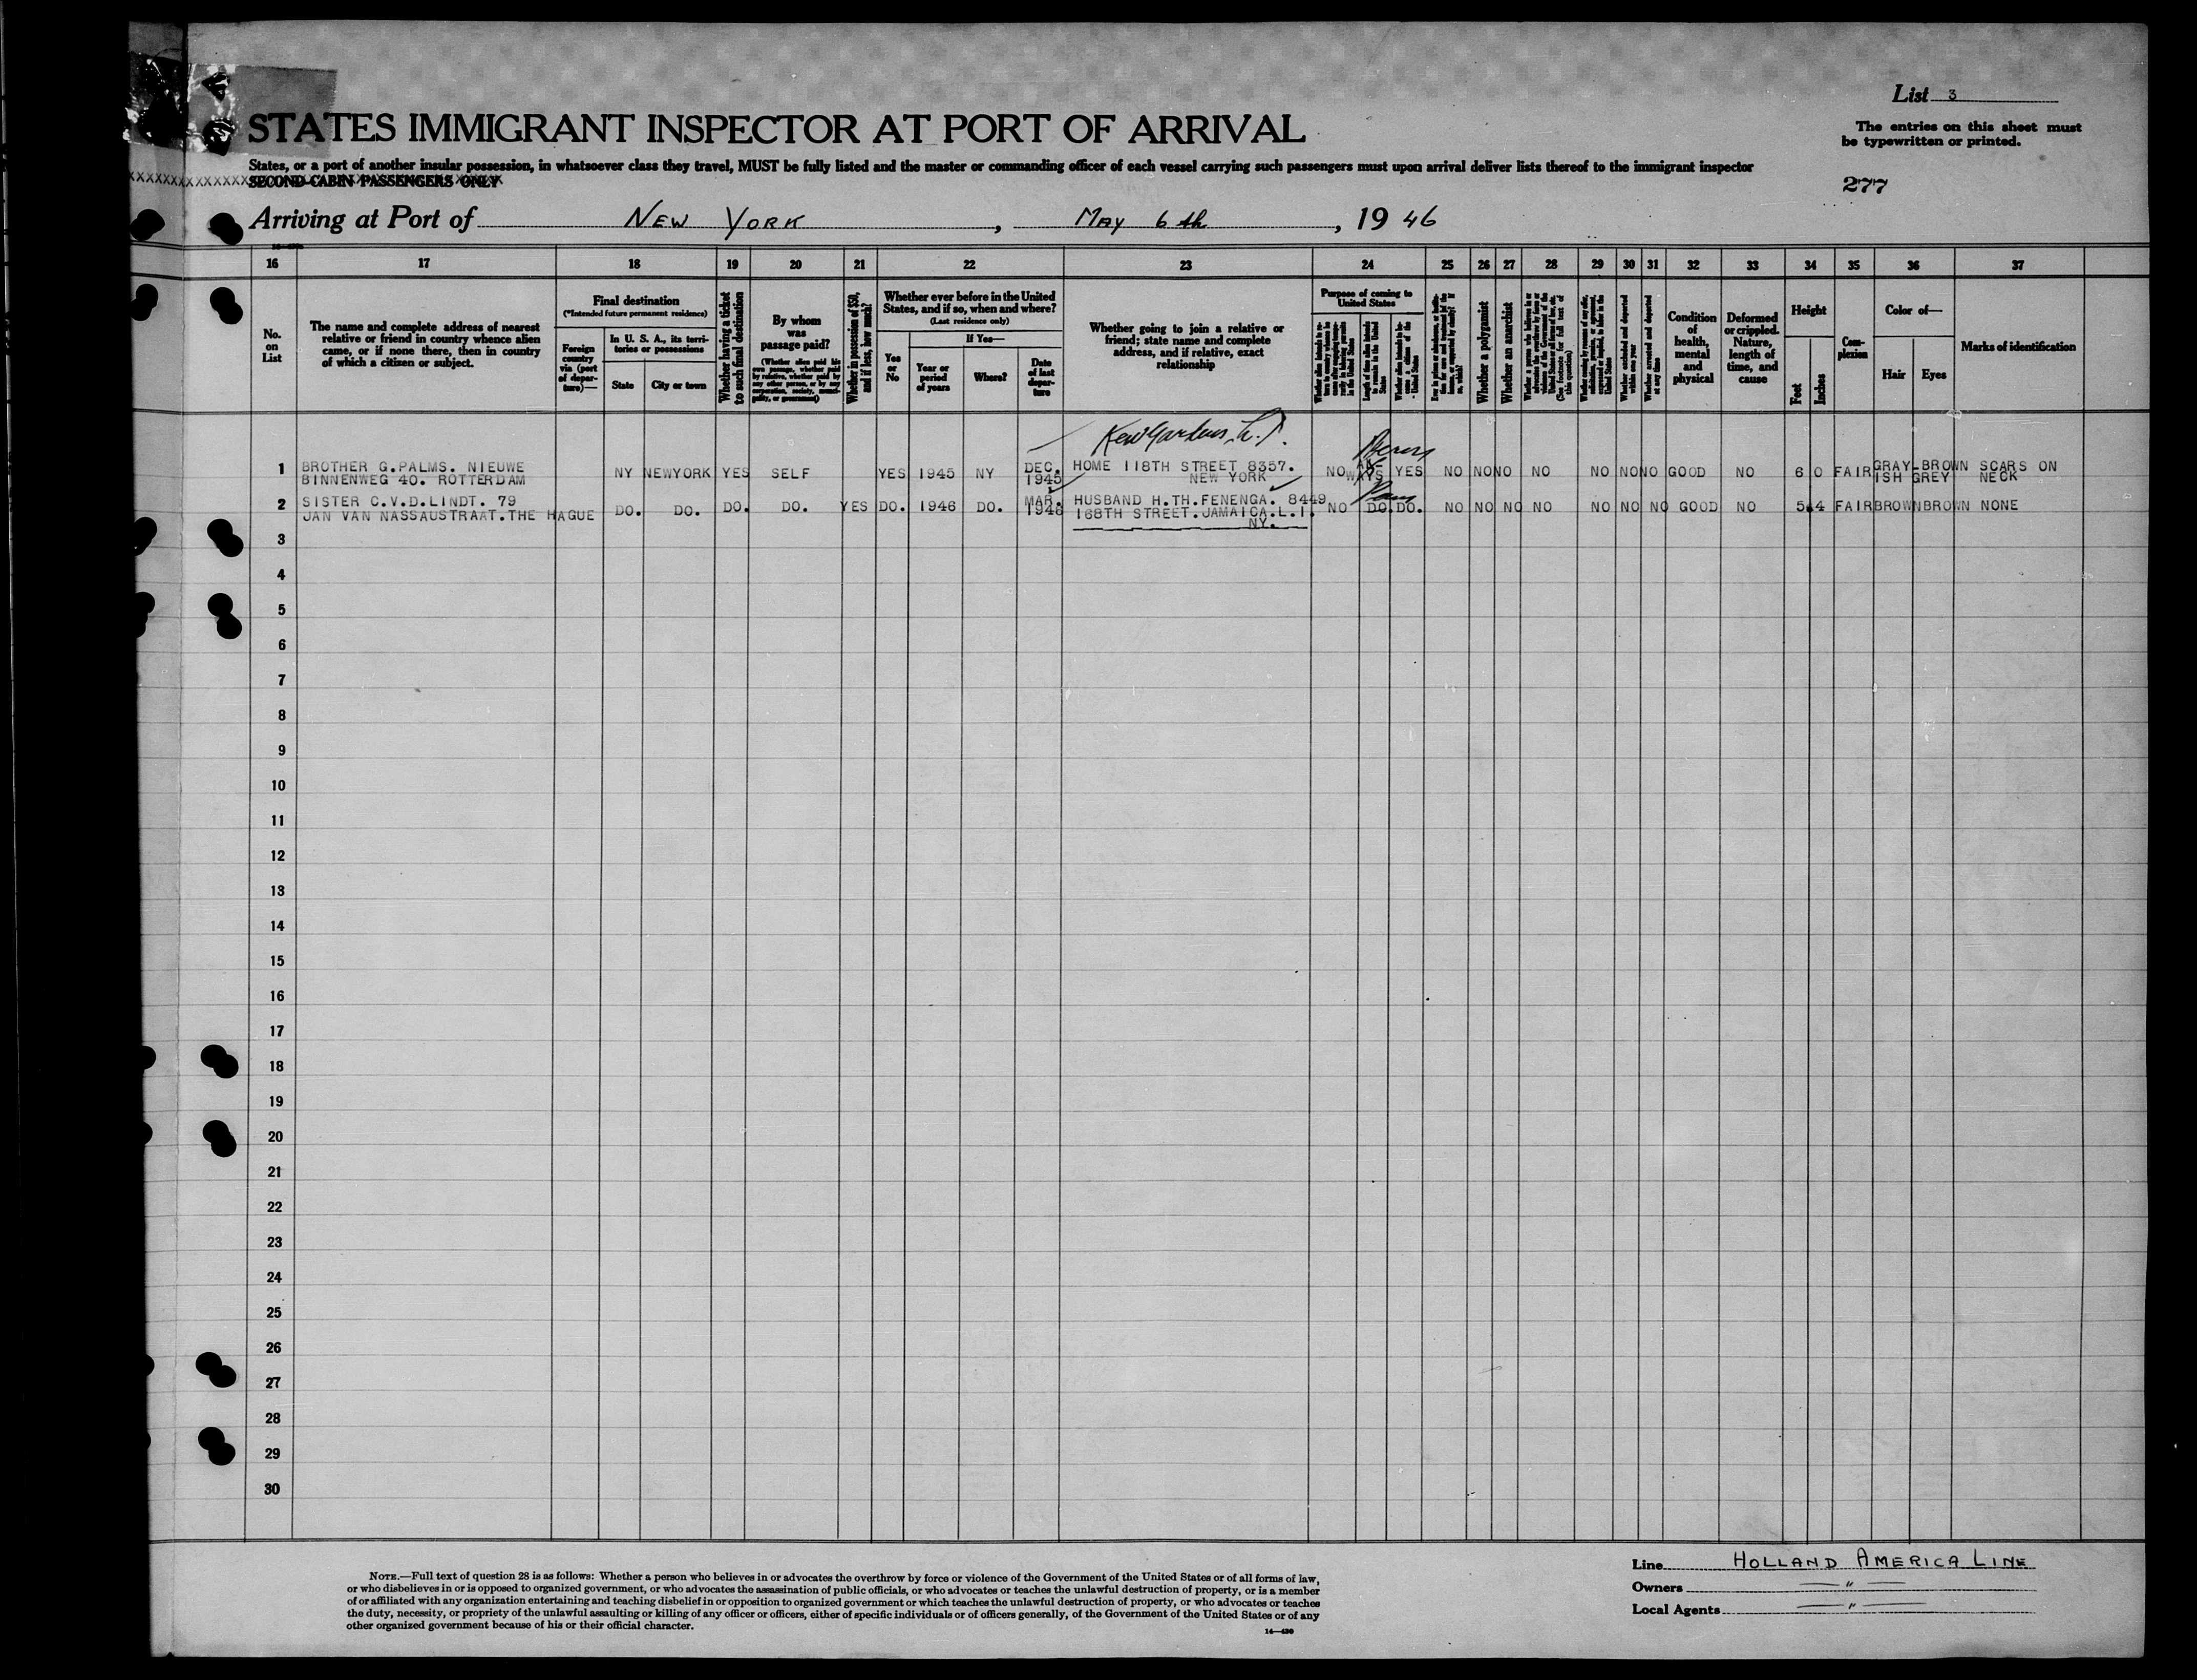 List 3
The entries on this sheet must
be typewritten or printed.
277
STATES IMMIGRANT INSPECTOR AT PORT OF ARRIVAL
States, or a port of another insular possession, in whatsoever class they travel, MUST be fully listed and the master or commanding officer of each vessel carrying such passengers must upon arrival deliver lists thereof to the immigrant inspector
SECOND-CABIN PASSENGERS ONLY
Arriving at Port of NEW YORK, MAY 6th, 1946
16 17 18 19 20 21 22 23 24 25 26 27 28 29 30 31 32 33 34 35 36 37
No.
on
List
The name and complete address of nearest
relative or friend in country whence alien
came, or if none there, then in country
of which a citizen or subject.
Final destination
(*Intended future permanent residence)
Foreign
country
via (port
of depar-
ture)—
In U. S. A., its terri-
tories or possessions
State
City or town
Whether having a ticket
to such final destination
By whom
was
passage paid?
(Whether alien paid his
own passage, whether paid
by relative, whether paid by
any other person, or by any
corporation, society, munici-
pality, or government)
Whether in possession of $50,
and if less, how much?
Whether ever before in the United
States, and if so, when and where?
(Last residence only)
Yes
or
No
If Yes—
Year or
period
of years
Where?
Date
of last
depar-
ture
Whether going to join a relative or
friend; state name and complete
address, and if relative, exact
relationship
Purpose of coming to
United States
Length of time alien intends
to remain in the United
States
Whether a polygamist
Whether an anarchist
(See footnote for full text of
this question)
Whether arrested and deported
at any time
Condition
of
health,
mental
and
physical
Deformed
or crippled.
Nature,
length of
time, and
cause
Height
Feet
Inches
Com-
plexion
Color of—
Hair
Eyes
Marks of identification
Kew Gardens, L.I.
1 BROTHER G.PALMS. NIEUWE
BINNENWEG 40. ROTTERDAM
NY NEWYORK YES SELF YES 1945 NY
DEC.
1945
HOME 118TH STREET 8357.
NEW YORK
NO AL-
WAYS YES NO NO NO NO NO NO NO GOOD NO 6 0 FAIR
GRAY-
ISH
BROWN
GREY
SCARS ON
NECK
2 SISTER C.V.D.LINDT. 79
JAN VAN NASSAUSTRAAT.THE HAGUE
DO. DO. DO. DO. YES DO. 1946 DO.
MAR.
1946
HUSBAND H.TH.FENENGA. 8449
168TH STREET.JAMAICA.L.I.
NY.
NO DO. DO. NO NO NO NO NO NO NO GOOD NO 5 4 FAIR BROWN BROWN NONE
3
4
5
6
7
8
9
10
11
12
13
14
15
16
17
18
19
20
21
22
23
24
25
26
27
28
29
30
NOTE.—Full text of question 28 is as follows: Whether a person who believes in or advocates the overthrow by force or violence of the Government of the United States or of all forms of law,
or who disbelieves in or is opposed to organized government, or who advocates the assassination of public officials, or who advocates or teaches the unlawful destruction of property, or is a member
of or affiliated with any organization entertaining and teaching disbelief in or opposition to organized government or which teaches the unlawful destruction of property, or who advocates or teaches
the duty, necessity, or propriety of the unlawful assaulting or killing of any officer or officers, either of specific individuals or of officers generally, of the Government of the United States or of any
other organized government because of his or their official character.
Line HOLLAND AMERICA LINE
Owners — " —
Local Agents — " —